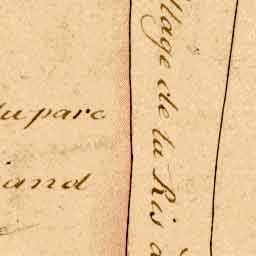 du parc
iand
llage de la Ris à